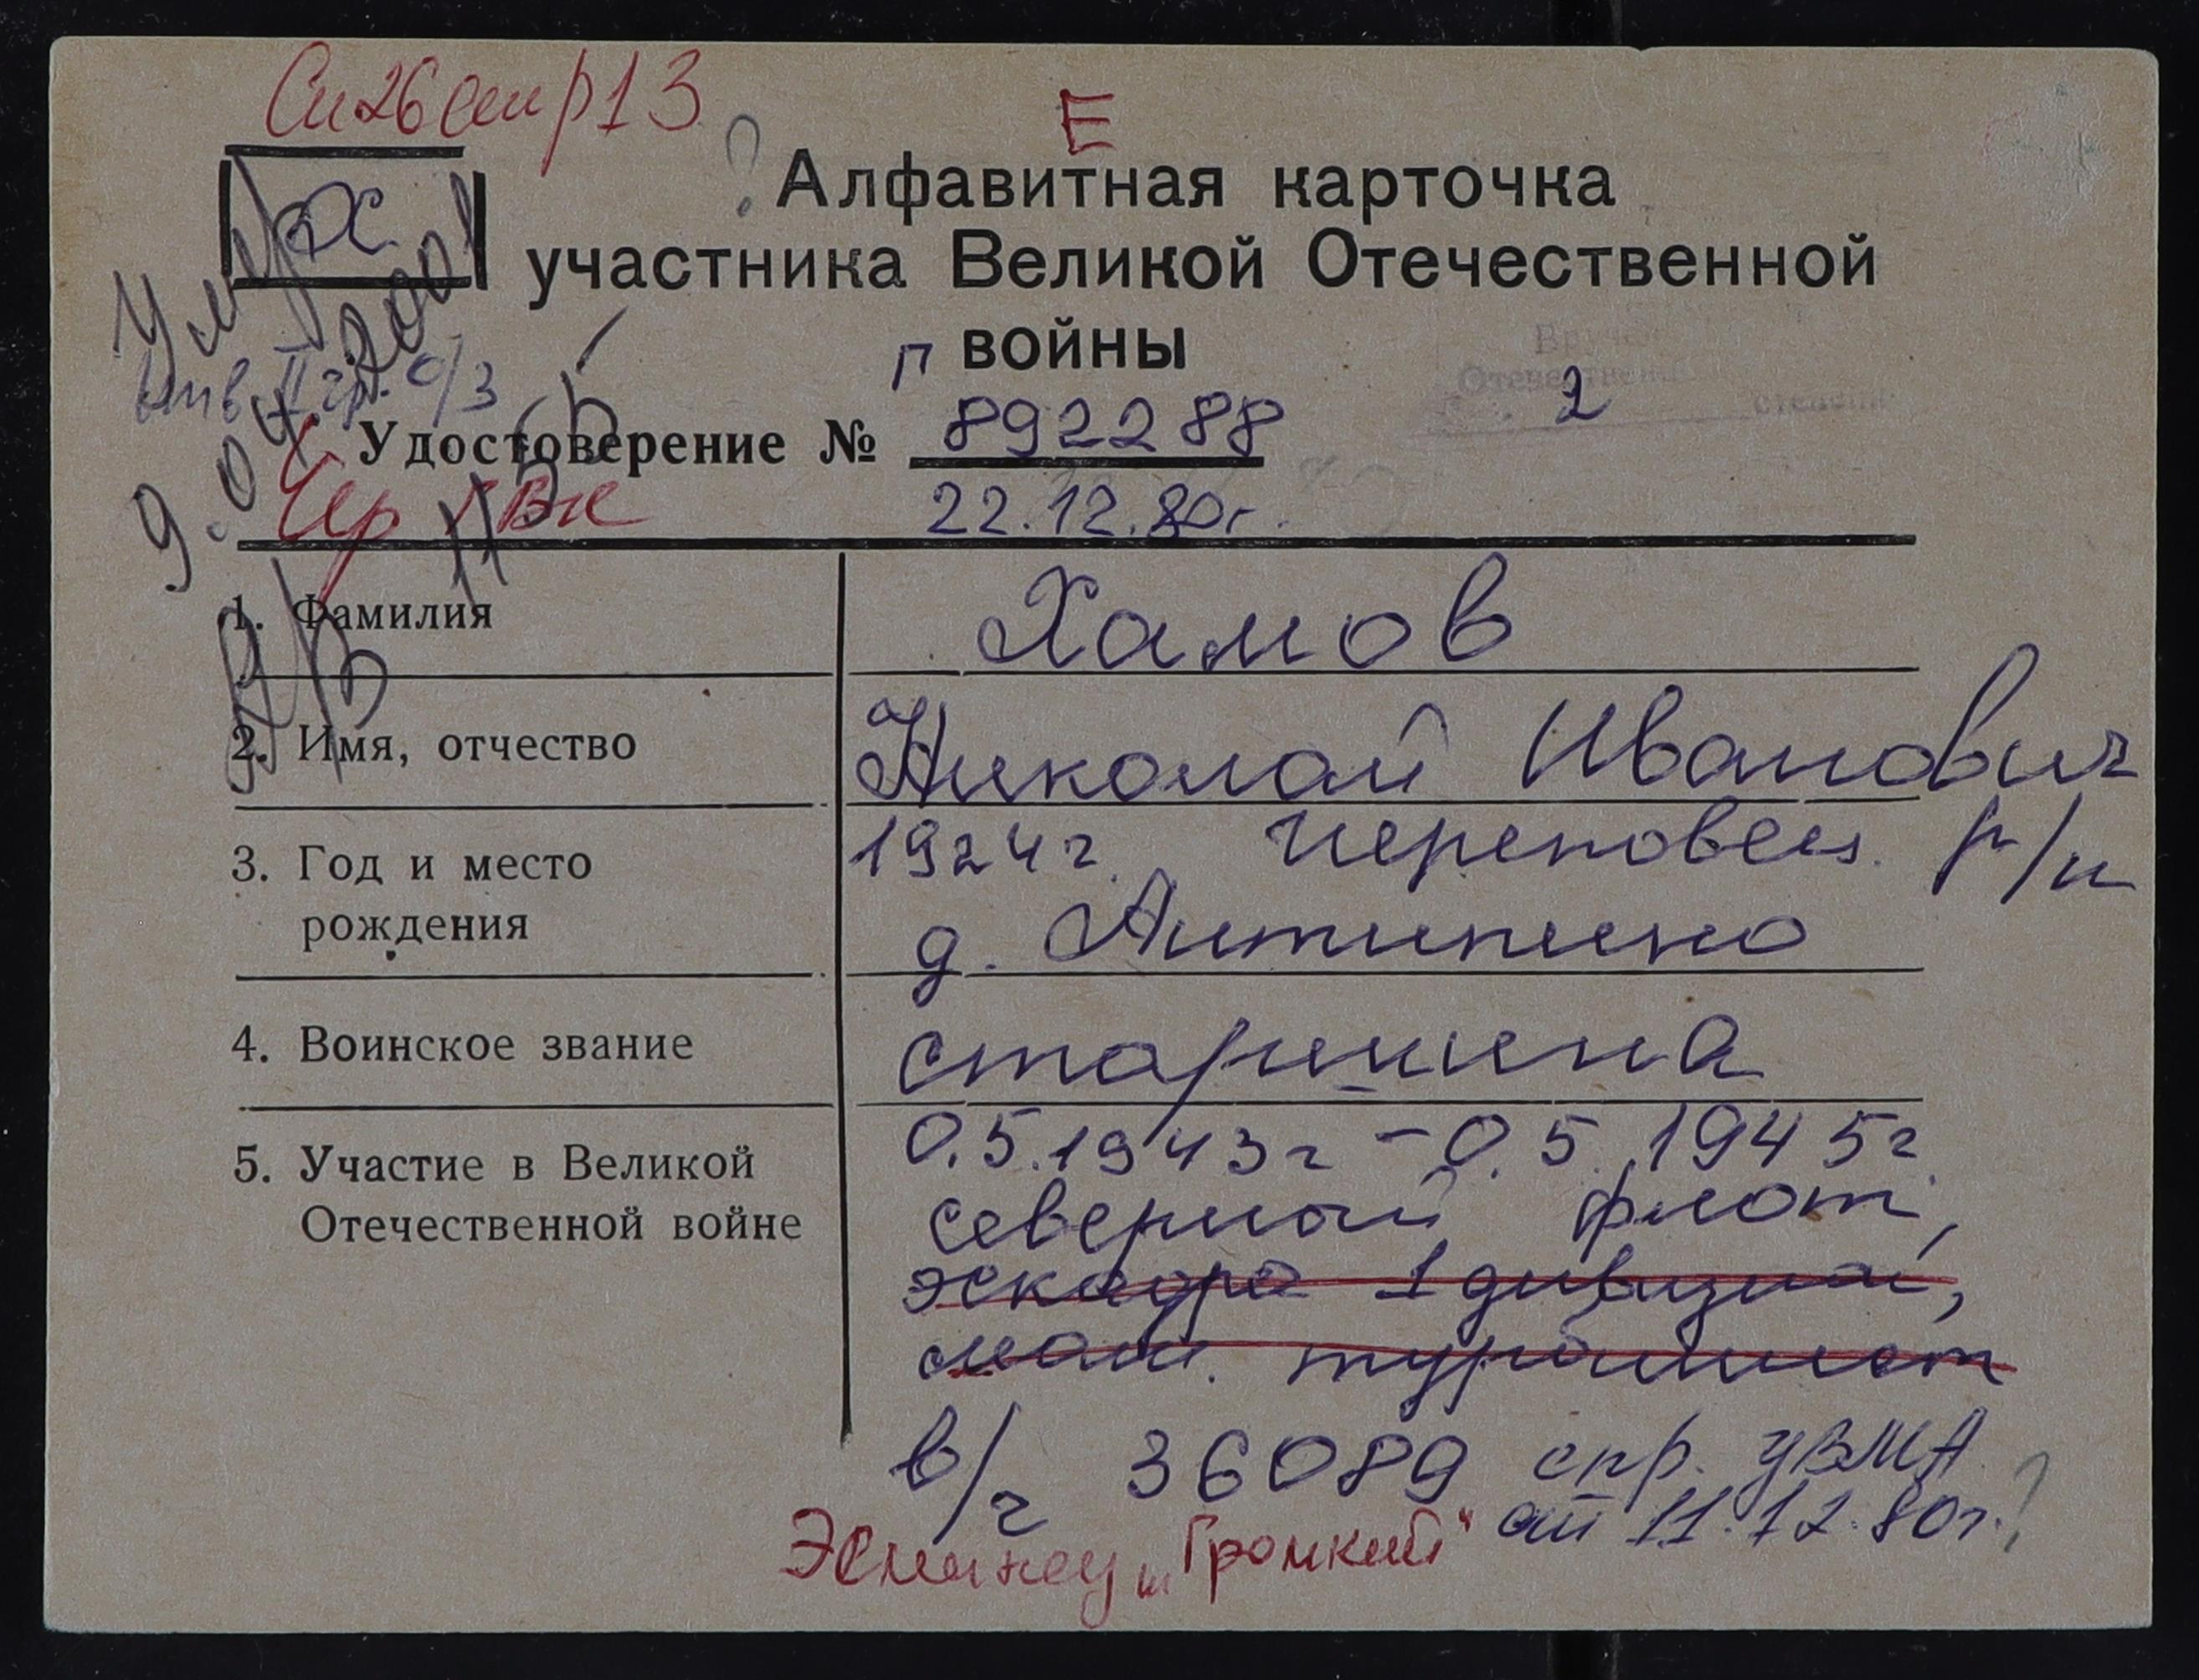 Сп 26 стр 13
Е
? Алфавитная карточка
Х
участника Великой Отечественной
войны
Умер
9.04.2000
инв. II гр. о/з
П
2
Удостоверение № 892288
22.12.80г.
Чер ГВК
1. Фамилия Хамов
2. Имя, отчество Николай Иванович
3. Год и место 1924г. Череповец. р/н
рождения д. Антипино
4. Воинское звание старшина
5. Участие в Великой 0.5.1943г - 0.5.1945г
Отечественной войне северный флот,
эскадра 1 дивизион,
маш. турбинист
в/ч 36089 спр. ЦВМА
от 11.12.80г. ?
Эсминец „Громкий“